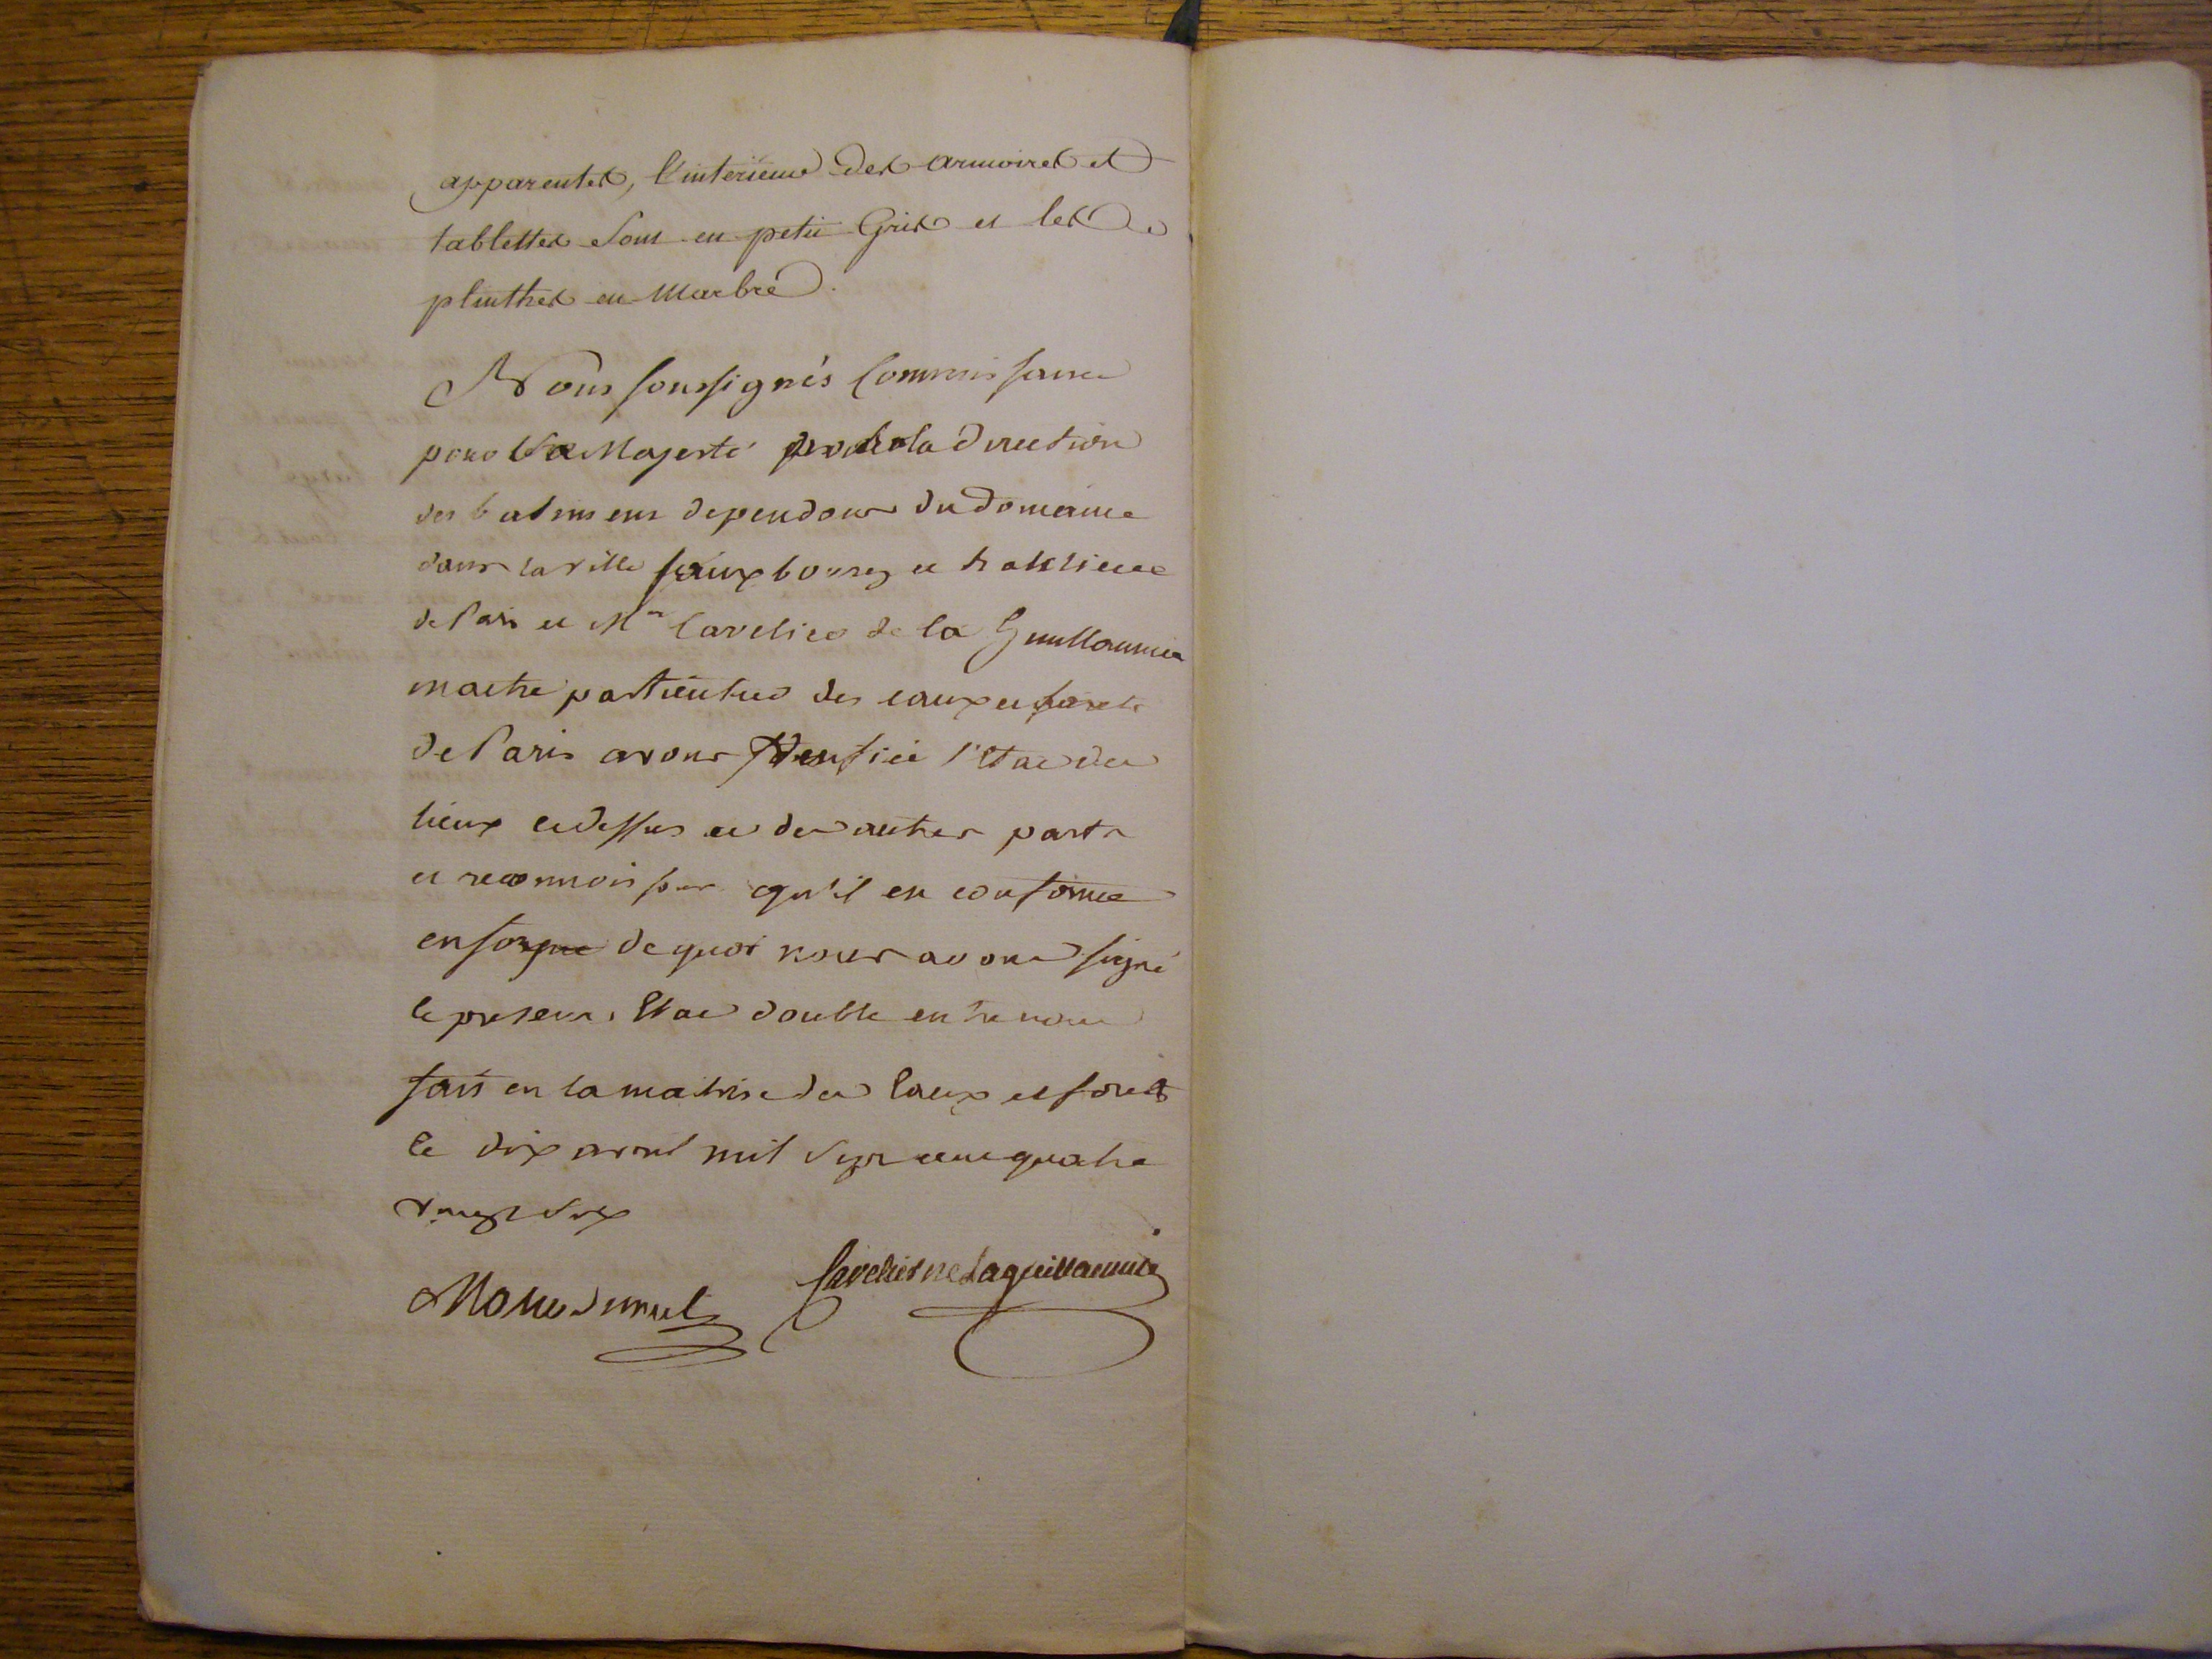 apparentes, l'interieur des armoires et
tablettes sont en petit Gris et les
plinthes en Marbré.
Nous soussignés Commissaire
pour Sa Majesté pour la direction
des batimens dependans du domaine
dans la ville fauxbourg et banlieue
de Paris et Mr Cavelier de la Guillaumie
maitre particulier des eaux et forets
de Paris avons verifié l'Etat des
lieux cidessus et des autres parts
et reconnoissons qu'il est conforme
en foy de quoi nous avons signé
le present Etat double entre nous
fait en la maitrise des Eaux et forets
le dix avril mil sept cent quatre
vingt six
Cavelier de Laguillaumie